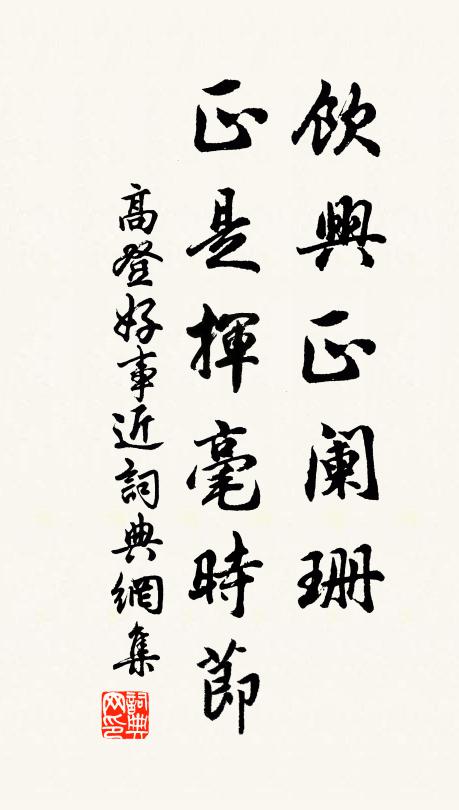 飲興正闌珊
正是揮毫時節
高登好事近詞典網集
詞典網印